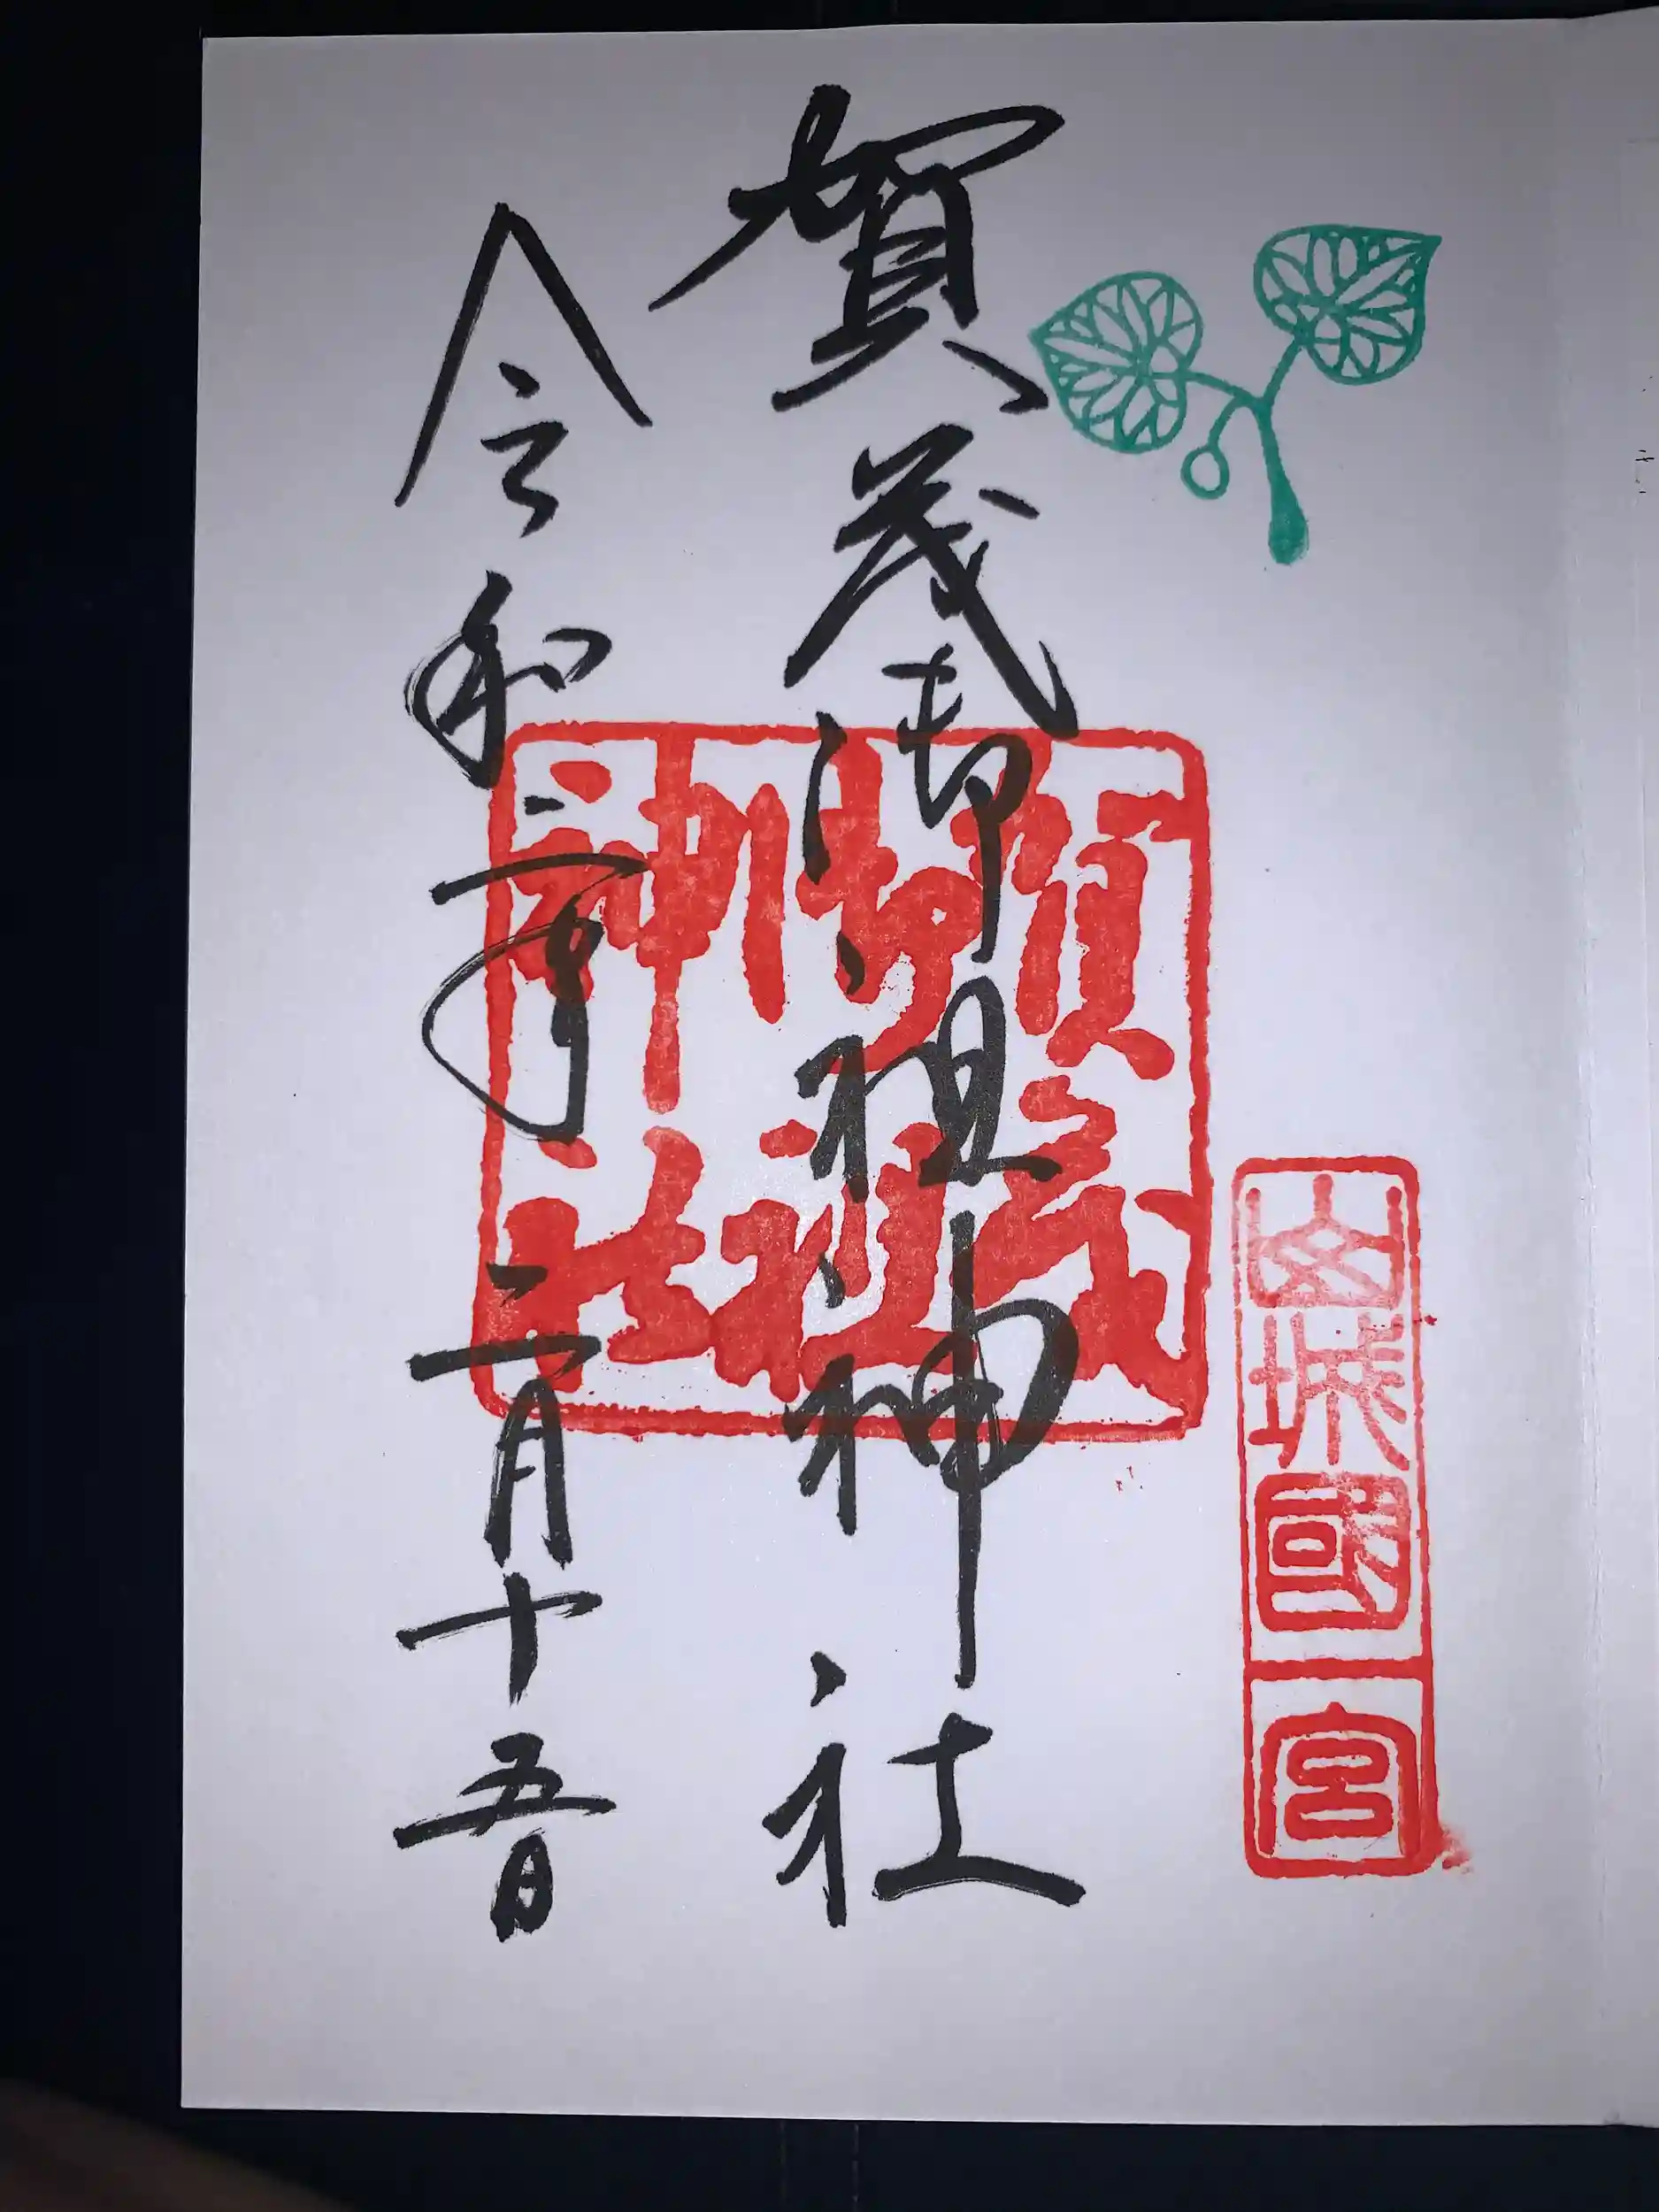 山城國一宮
賀茂御祖神社
賀茂
御祖
神社
令和二年二月十五日